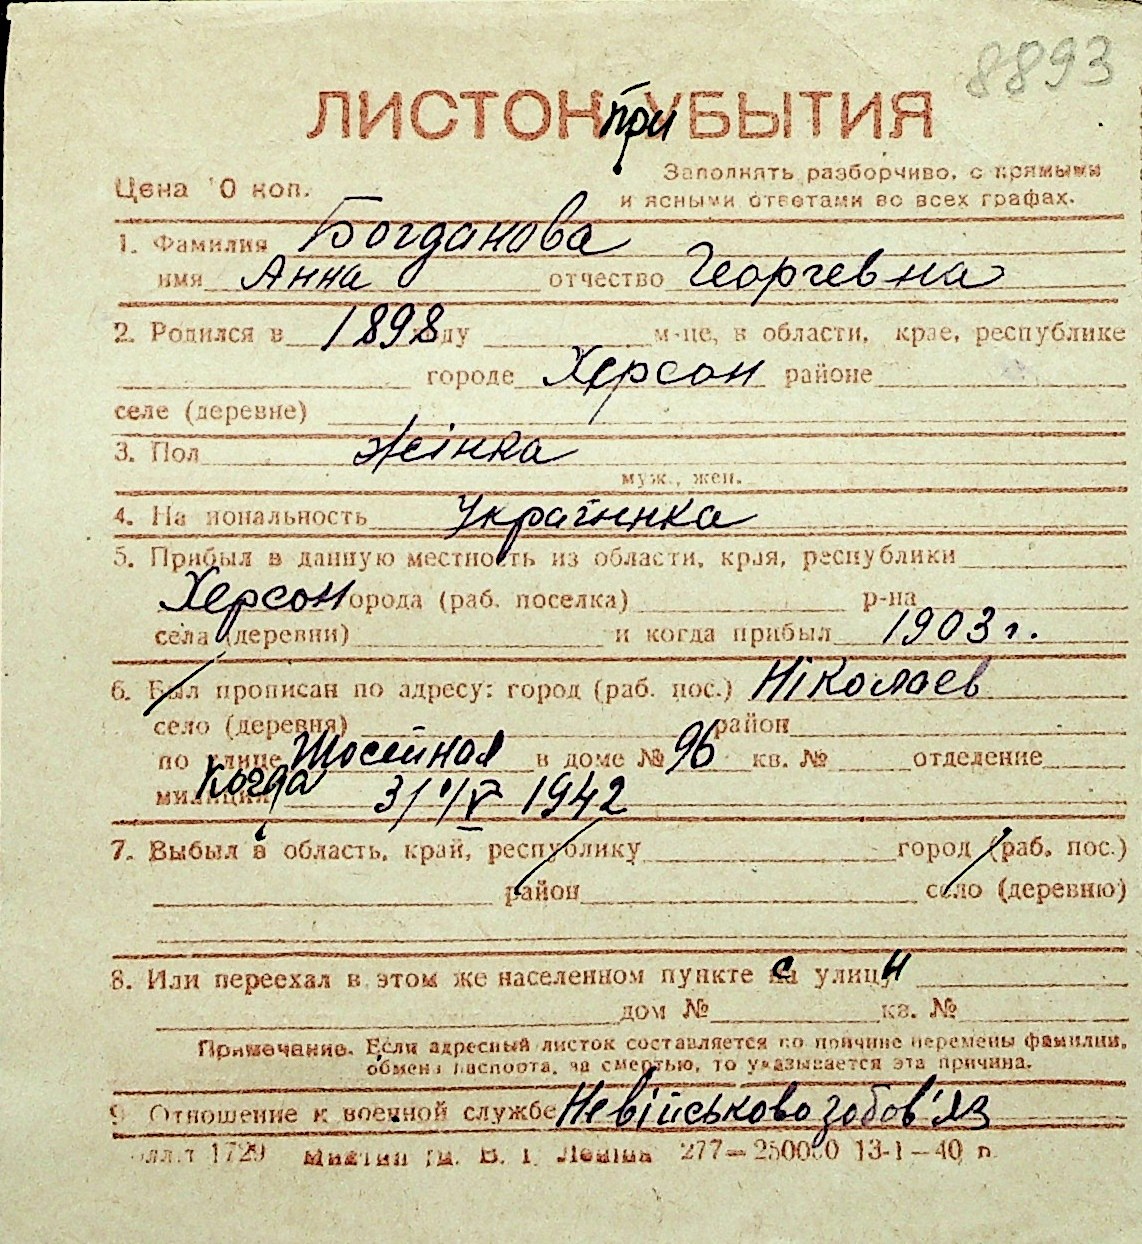 8893
ЛИСТОК при УБЫТИЯ
Цена 10 коп. Заполнять разборчиво, с прямыми
и ясными ответами во всех графах.
1. Фамилия Богданова
имя Анна отчество Георгевна
2. Родился в 1898 году м-це, в области, крае, республике
городе Херсон районе
селе (деревне)
3. Пол жінка
муж., жен.
4. На иональность Українка
5. Прибыл в данную местность из области, края, республики
Херсон города (раб. поселка) р-на
села (деревни) и когда прибыл 1903 г.
6. Был прописан по адресу: город (раб. пос.) Ніколаев
село (деревня) район
по улице Шосейная в доме № 96 кв. № отделение
милиции когда 31/IV 1942
7. Выбыл в область, край, республику город (раб. пос.)
район село (деревню)
8. Или переехал в этом же населенном пункте с улицы и
дом № кв. №
Примечание. Если адресный листок составляется по причине перемены фамилии,
обмена паспорта, за смертью, то указывается эта причина.
9. Отношение к военной службе Невійськовозобов'яз
1729 В. І. Леніна 277—250000 13-1—40 р.